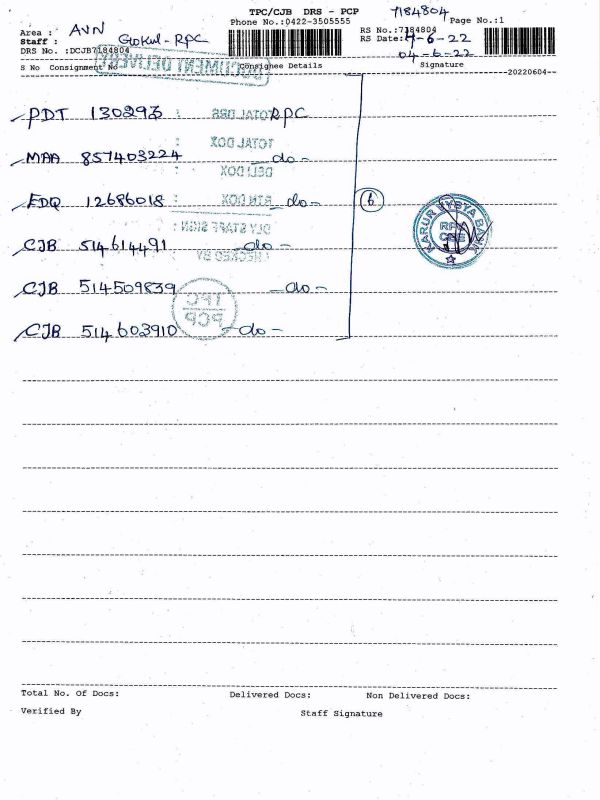 TPC/CJB DRS - PCP 7184804
Phone No.:0422-3505555 Page No.:1
Area : AVN RS No.:7184804
Staff : Gokul - RPC RS Date: 4-6-22
DRS No. :DCJB7184804 04-6-22
S No Consignment No Consignee Details Signature
20220604
DOCUMENT DELIVERY
PDT 130293 RPC
TOTAL DRS :
TOTAL DOX :
MAA 857403224 -do-
DELI DOX :
EDQ 12686018 -do- 6
RTN DOX :
DLY STAFF SIGN :
KARUR VYSYA BANK
RPC
CBE
CJB 514614491 -do-
CHECKED BY
CJB 514509839 -do-
TPC
PCP
CJB 514603910 -do-
Total No. Of Docs: Delivered Docs: Non Delivered Docs:
Verified By Staff Signature